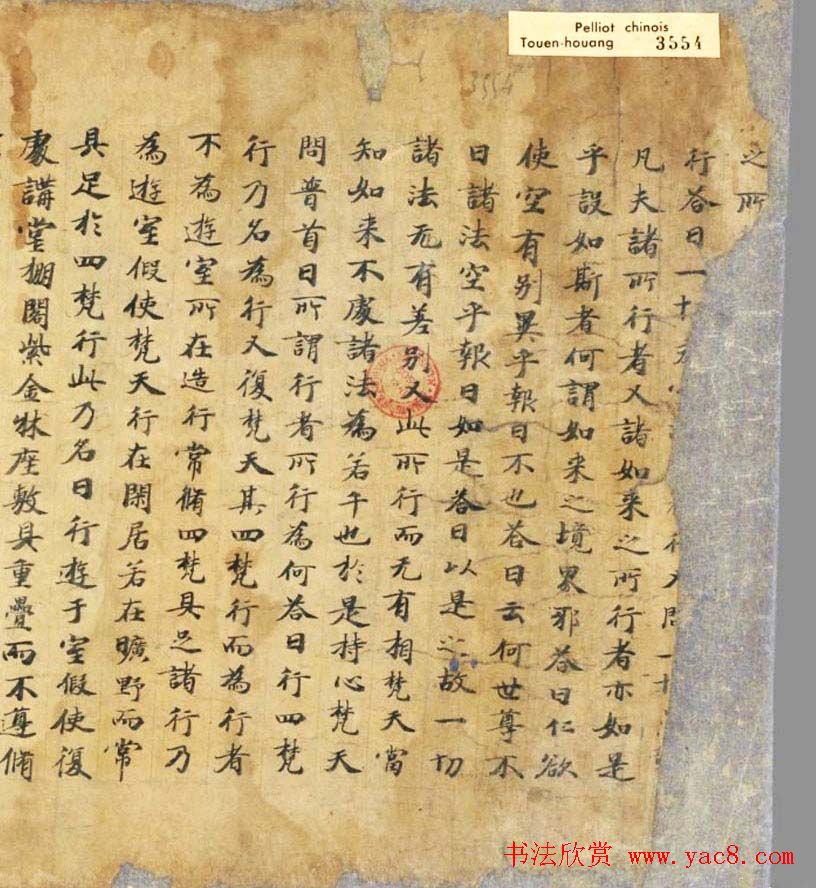 Pelliot chinois
Touen-houang 3554
3554
之所
行荅曰一行又問一
凡夫諸所行者又諸如来之所行者亦如是
乎設如斯者何謂如来之境界邪荅曰仁欲
使空有別異乎報曰不也荅曰云何世尊不
曰諸法空乎報曰如是荅曰以是之故一切
諸法无有差別又此所行而无有相梵天當
知如来不處諸法為若干也於是持心梵天
問普首曰所謂行者所行為何荅曰行四梵
行乃名為行又復梵天其四梵行而為行者
不為遊室所在造行常脩四梵具足諸行乃
為遊室假使梵天行在閑居若在曠野而常
具足於四梵行此乃名曰行遊于室假使復
處講堂棚閣紫金牀座敷具重疊而不遵脩
书法欣赏 www.yac8.com